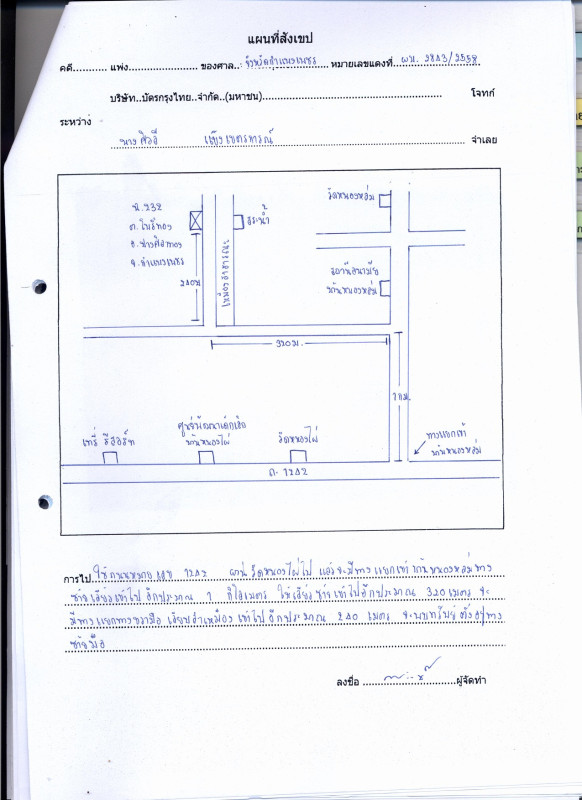 แผนที่สังเขป
คดี............ แพ่ง....................... ของศาล..จังหวัดกำแพงเพชร หมายเลขแดงที่ ผบ. 2843/2558
บริษัท..บัตรกรุงไทย..จำกัด..(มหาชน)............................................................ โจทก์
ระหว่าง
นาง จำเลย
น.232
ต.โพธิ์ทอง
อ.ปางศิลาทอง
จ.กำแพงเพชร
240ม
เหมืองสาธารณะ
สระน้ำ
วัดหนองหล่ม
สถานีอนามัย
บ้านหนองหล่ม
320ม.
1กม.
เทรี่ รีสอร์ท
ศูนย์พัฒนาเด็กเล็ก
บ้านหนองไผ่
วัดหนองไผ่
ทางแยกเข้า
บ้านหนองหล่ม
ถ. 1242
การไป..ใช้ถนนหมายเลข 1242 ผ่านวัดหนองไผ่ไป แล้วจะมีทางแยกเข้าบ้านหนองหล่มทาง
ซ้ายเลี้ยวเข้าไปอีกประมาณ 1 กิโลเมตร ให้เลี้ยวซ้ายเข้าไปอีกประมาณ 320 เมตร จะ
มีทางแยกทางขวามือ เลียบลำเหมืองเข้าไปอีกประมาณ 240 เมตร จะพบทรัพย์ตั้งอยู่ทาง
ซ้ายมือ
ลงชื่อ ..............................ผู้จัดทำ